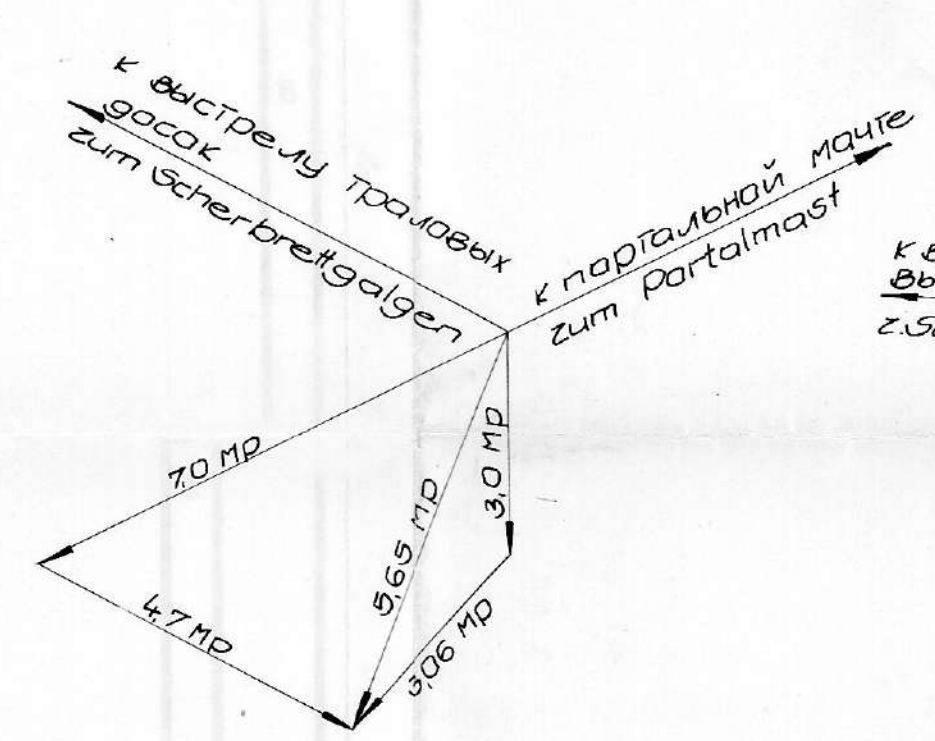 к выстрелу траловых
досак
zum Scherbrettgalgen
к партальной мачте
zum Portalmast
к в
Вы
z.S
7,0 Мр
5,65 Мр
3,0 Мр
4,7 Мр
3,06 Мр